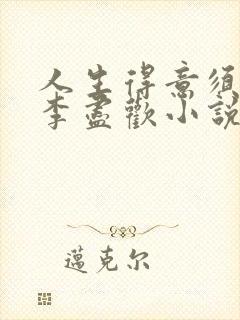 人生得意須
李盡歡小説
邁克尔